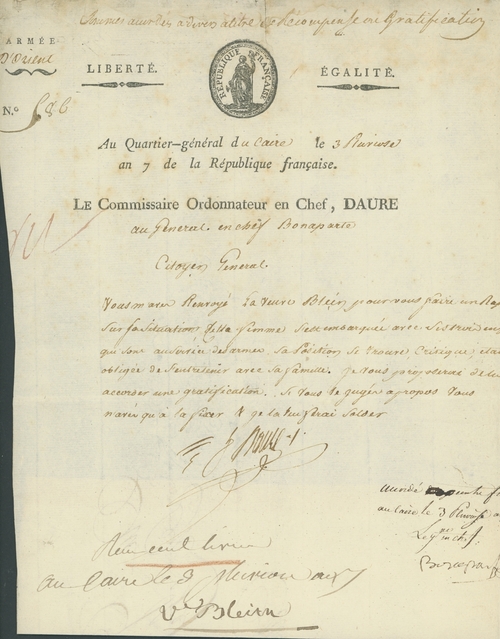 Sommes accordées a divers a titre de Récompense ou Gratification
ARMÉE
D'Orient
LIBERTÉ.
RÉPUBLIQUE FRANÇAISE
ÉGALITÉ.
N.º 586
Au Quartier-général du Caire le 3 Pluviose
an 7 de la République française.
LE Commissaire Ordonnateur en Chef, DAURE
au Général en chef Bonaparte
Citoyen Général.
Vous m'avez Renvoyé La veuve Blein pour vous faire un
Sur sa Situation cette femme s'est embarquée avec ses trois
qui sont au Service des armées sa Position se trouve Critique,
obligée de S'entretenir avec sa famille. je vous proposerai de lui
accorder une gratification. Si vous le jugés apropos vous
n'avés qu'à la fixer & je la lui ferai Solder
au Caire le 3 Pluviose
au Caire le 3 Pluviose an 7
Ve Blein